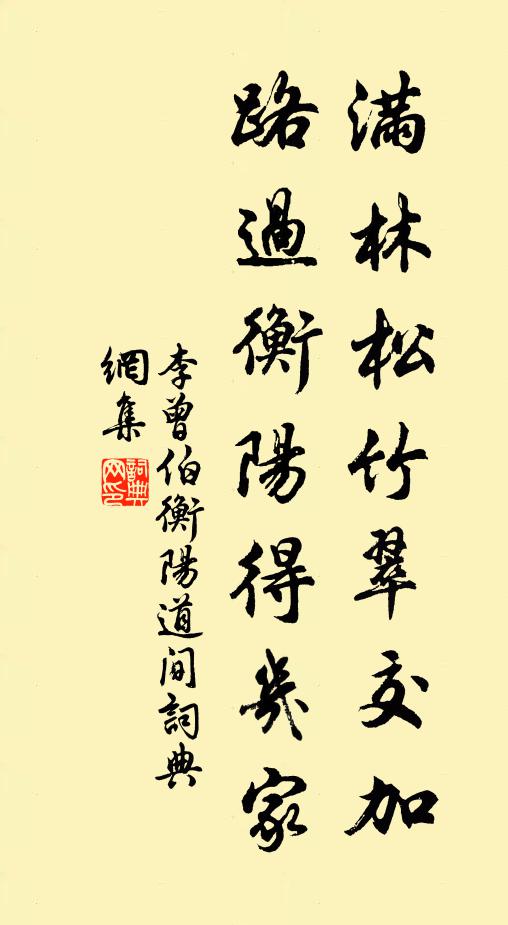 滿林松竹翠交加
路過衡陽得幾家
李曾伯衡陽道間詞典
網集
詞典
网印